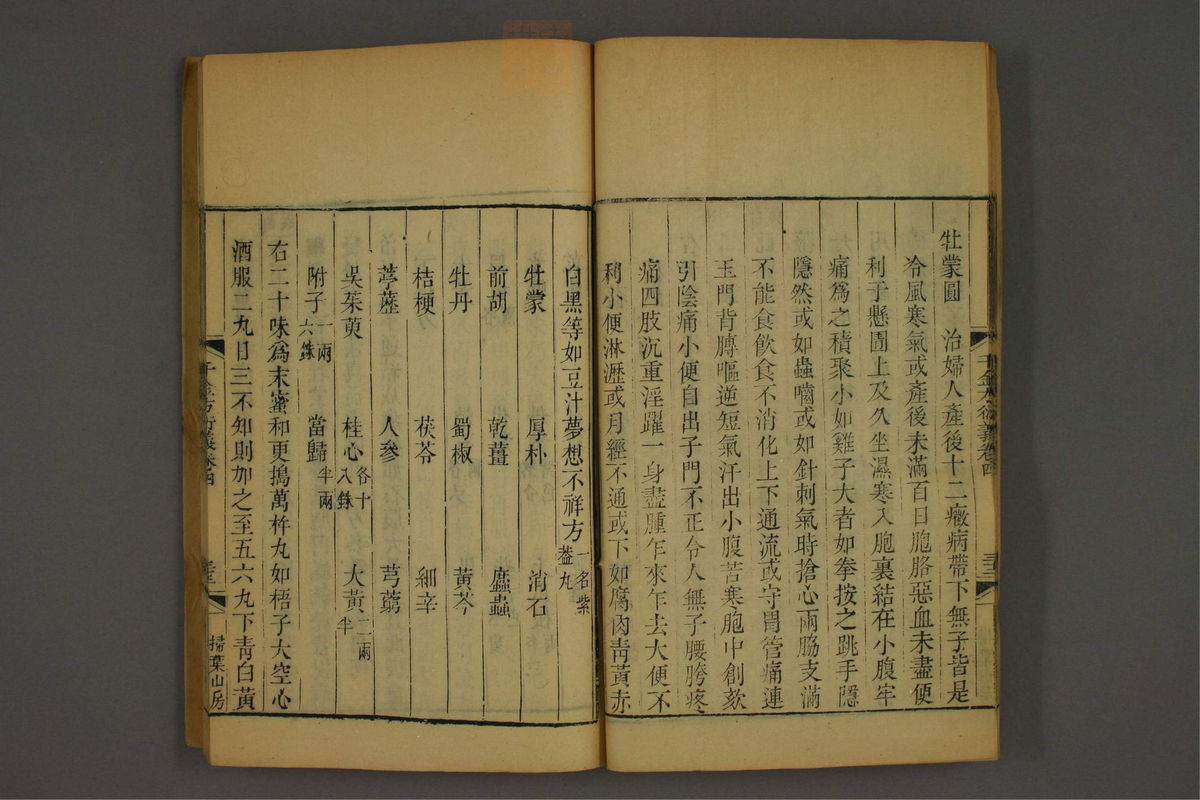 牡蒙圓　治婦人產後十二癥病帶下無子皆是
冷風寒氣或產後未滿百日胞胳惡血未盡便
利于懸圊上及久坐濕寒入胞裏結在小腹牢
痛爲之積聚小如雞子大者如拳按之跳手隱
隱然或如蟲嚙或如針刺氣時搶心兩脇支滿
不能食飲食不消化上下通流或守胃管痛連
玉門背膊嘔逆短氣汗出小腹苦寒胞中創欬
引陰痛小便自出子門不正令人無子腰胯疼
痛四肢沉重淫躍一身盡腫乍來乍去大便不
利小便淋瀝或月經不通或下如腐肉青黃赤
白黑等如豆汁夢想不祥方一名紫葢丸
牡蒙　厚朴　消石
前胡　乾薑　䗪蟲
牡丹　蜀椒　黃芩
桔梗　茯苓　細辛
葶藶　人參　芎藭
吳茱萸　桂心各十八銖　大黃二兩半
附子一兩六銖　當歸半兩
右二十味爲末蜜和更搗萬杵丸如梧子大空心
酒服二丸日三不知則加之至五六丸下青白黃
千金方衍義卷四
掃葉山房